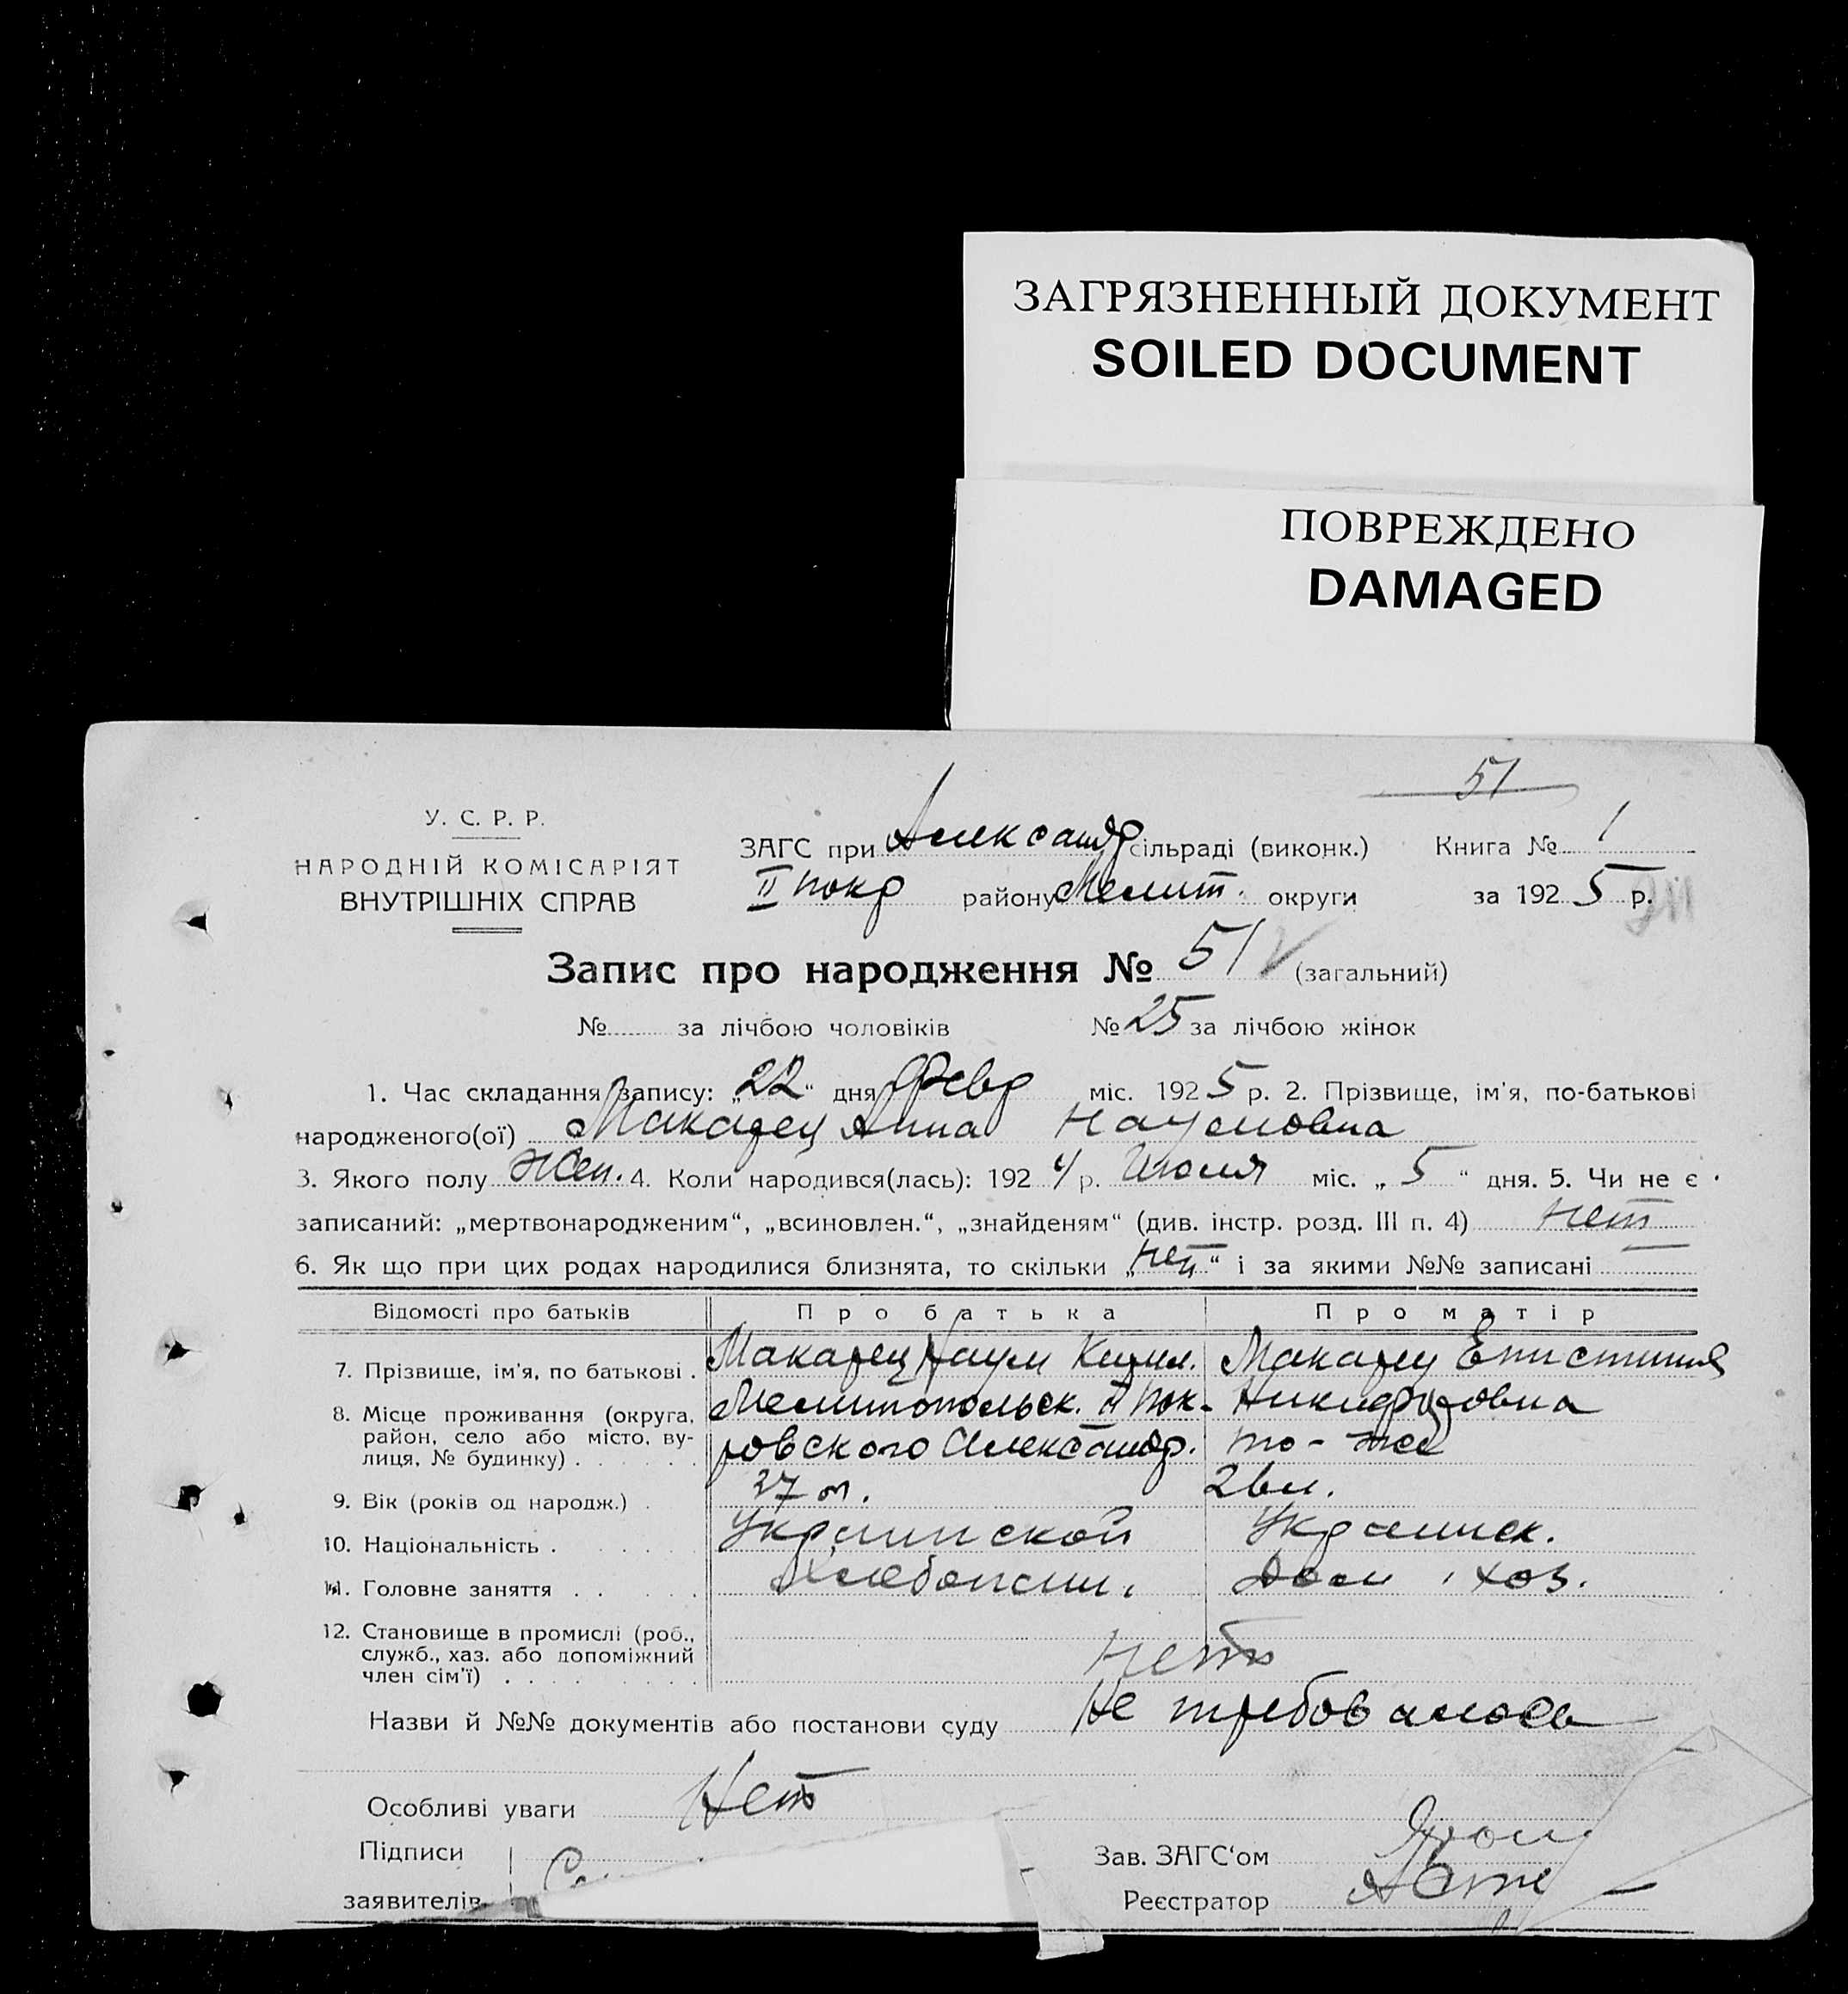 ЗАГРЯЗНЕННЫЙ ДОКУМЕНТ
SOILED DOCUMENT
ПОВРЕЖДЕНО
DAMAGED
51
У. С. Р. Р.
НАРОДНІЙ КОМІСАРІЯТ
ВНУТРІШНІХ СПРАВ
ЗАГС при Александр сільраді (виконк.) Книга № 1
II Покр району Мелит. округи за 1925 р.
Запис про народження № 51 (загальний)
№ за лічбою чоловіків № 25 за лічбою жінок
1. Час складання запису: „22“ дня Февр міс. 1925 р. 2. Прізвище, ім'я, по-батькові
народженого(ої) Макарец Анна Наумовна
3. Якого полу Жен. 4. Коли народився(лась): 1924 р. Июля міс. „5“ дня. 5. Чи не є
записаний: „мертвонародженим“, „всиновлен.“, „знайденям“ (див. інстр. розд. III п. 4) Нет
6. Як що при цих родах народилися близнята, то скільки „нет“ і за якими №№ записані
Відомості про батьків Про батька Про матір
7. Прізвище, ім'я, по батькові . Макарец Наум Кирил. Макарец Епистиния
8. Місце проживання (округа, Мелитопольск. II Пок- Никифоровна
район, село або місто, ву- ровского Александр. то-же
лиця, № будинку) . . . . . .
9. Вік (років од народж.) . 27 л. 26 л.
10. Національність . . . . . Украинской Украинск.
11. Головне заняття . . . . Хлебопаш. Дом. хоз.
12. Становище в промислі (роб.,
служб., хаз. або допоміжний Нет
член сім'ї) . . . . . . . . .
Назви й №№ документів або постанови суду Не требовалось
Особливі уваги Нет
Підписи
Зав. ЗАГС‘ом
заявителів
Реєстратор